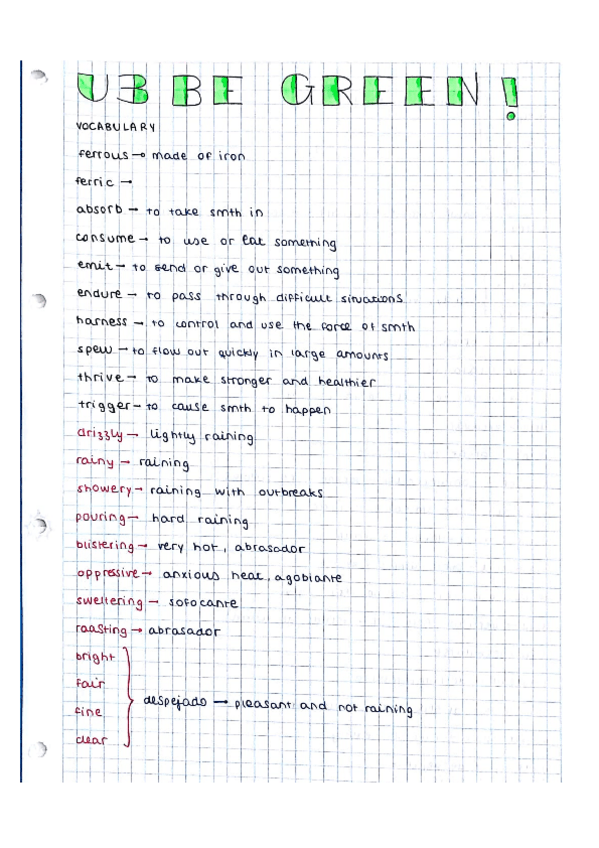 U3 BE GREEN!
VOCABULARY
ferrous → made of iron
ferric →
absorb → to take smth in
consume → to use or eat something
emit → to send or give out something
endure → to pass through difficult situations
harness → to control and use the force of smth
spew → to flow out quickly in large amounts
thrive → to make stronger and healthier
trigger → to cause smth to happen
drizzly → lightly raining
rainy → raining
showery → raining with outbreaks
pouring → hard raining
blistering → very hot, abrasador
oppressive → anxious heat, agobiante
sweltering → sofocante
roasting → abrasador
bright
fair
despejado → pleasant and not raining
fine
clear